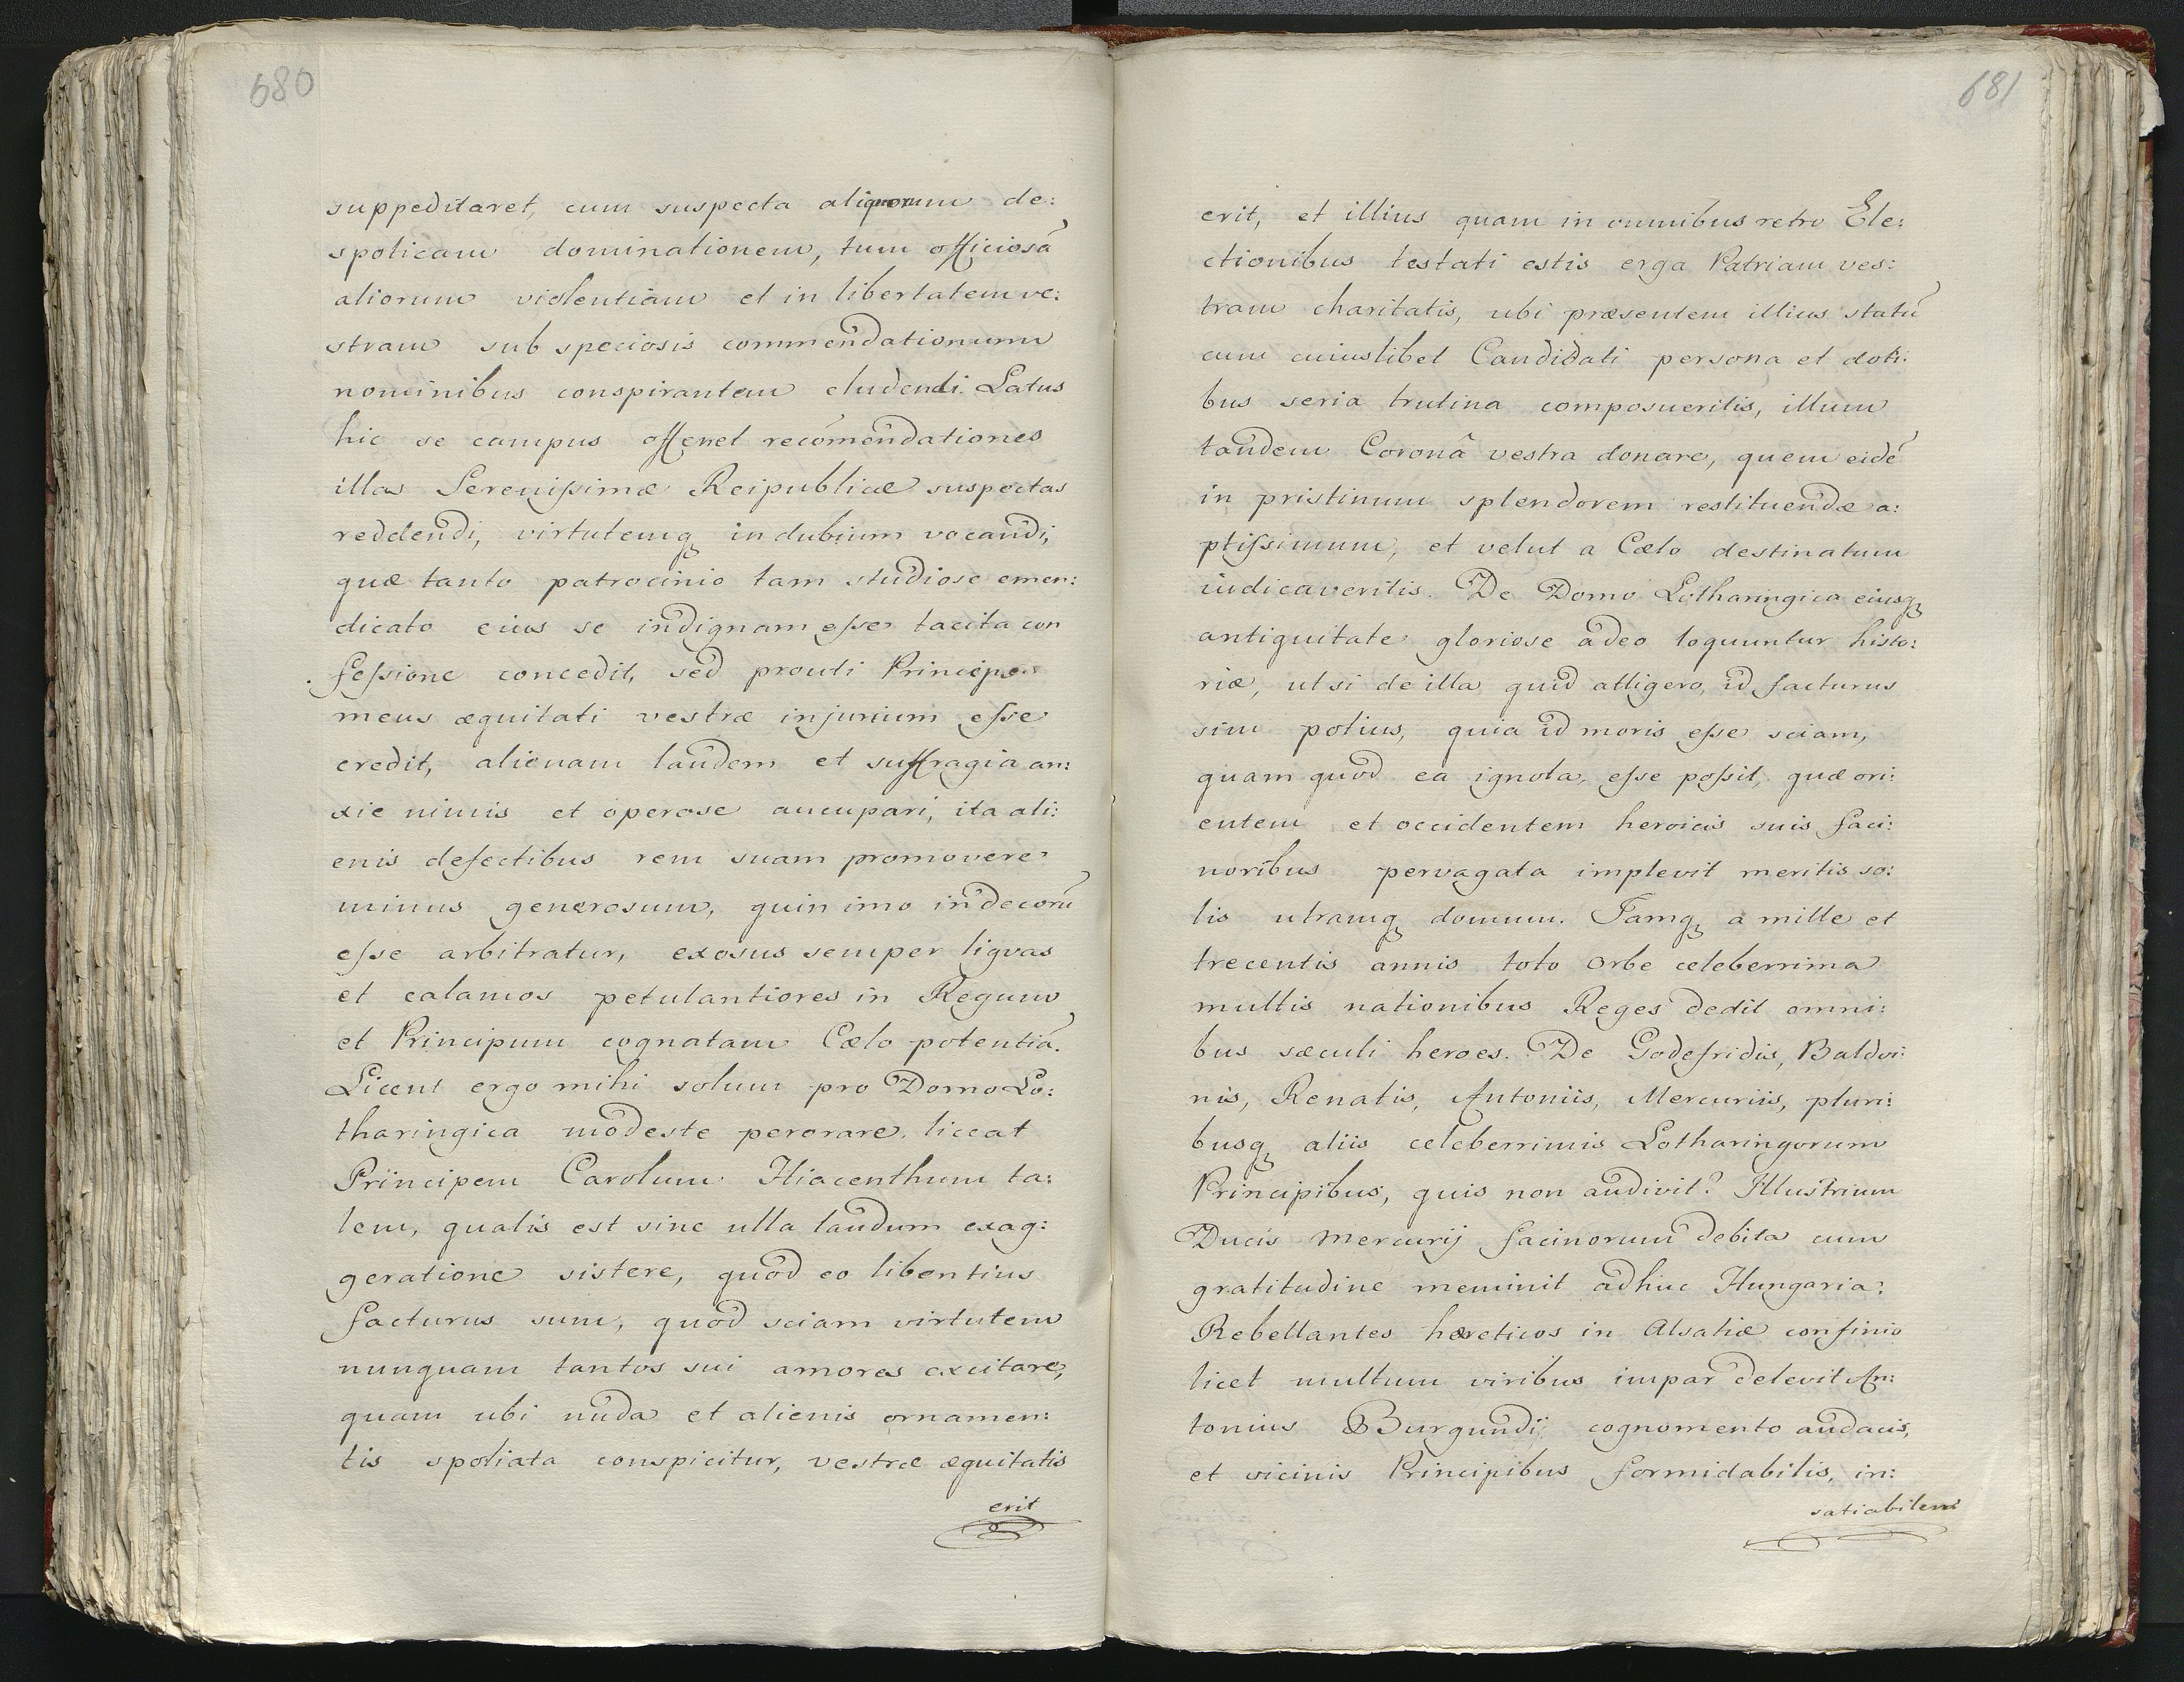 680
suppeditaret, cum suspecta aliquorum de:
spoticam dominationem, tum officiosã
aliorum violentiam et in libertatem ve:
stram sub speciosis commendationum
nominibus conspirantem eludendi. Latus
hic se campus offerret recõmendationes
illas Serenissimæ Reipublicæ suspectas
reddendi, virtutemq́ in dubium vocandi,
quæ tanto patrocinio tam studiose emen:
dicato eius se indignam esse tacita con
fessione concedit, sed prouti Princeps
meus æquitati vestræ injurium esse
credit, alienam laudem et suffragia an:
xie nimis et operose aucupari, ita ali:
enis defectibus rem suam promovere
minus generosum, quin imo indecorũ
esse arbitratur, exosus semper ligvas
et calamos petulantiores in Regum
et Principum cognatam Cœlo potentiã.
Licent ergo mihi solum pro Domo Lo:
tharingica modeste perorare, liceat
Principem Carolum Hiacenthum ta:
lem, qualis est sine ulla laudum exag:
geratione sistere, quod eo libentius
facturus sum, quod sciam virtutem
nunquam tantos sui amores excitare,
quam ubi nuda et alienis ornamen:
tis spoliata conspicitur, vestræ æquitatis
erit
681
erit, et illius quam in omnibus retro Ele:
ctionibus testati estis erga Patriam ves:
tram charitatis, ubi præsentem illius statũ
cum cuiuslibet Candidati persona et doti:
bus seria trutina composueritis, illum
tandem Coronâ vestra donare, quem eidẽ
in pristinum splendorem restituendæ a:
ptissimum, et velut a Cœlo destinatum
iudicaveritis. De Domo Lotharingica eiusq́
antiquitate gloriose adeo loquuntur histo:
riæ, ut si de illa quid attigero, id facturus
sim potius, quia id moris esse sciam,
quam quod ea ignota esse possit, quæ ori:
entem et occidentem heroicis suis faci:
noribus pervagata implevit meritis so:
lis utramq́ domum. Famq́ a mille et
trecentis annis toto Orbe celeberrima
multis nationibus Reges dedit omni:
bus sæculi heroes. De Godefridis, Baldvi:
nis, Renatis, Antoniis, Mercuriis, pluri:
busq́ aliis celeberrimis Lotharingorum
Principibus, quis non audivit? Illustrium
Ducis Mercurij facinorum debita cum
gratitudine meminit adhuc Hungaria:
Rebellantes hæreticos in Alsatiæ confinio
licet multum viribus impar delevit An:
tonius Burgundij cognomento audacis,
et vicinis Principibus formidabilis, in:
satiabilem